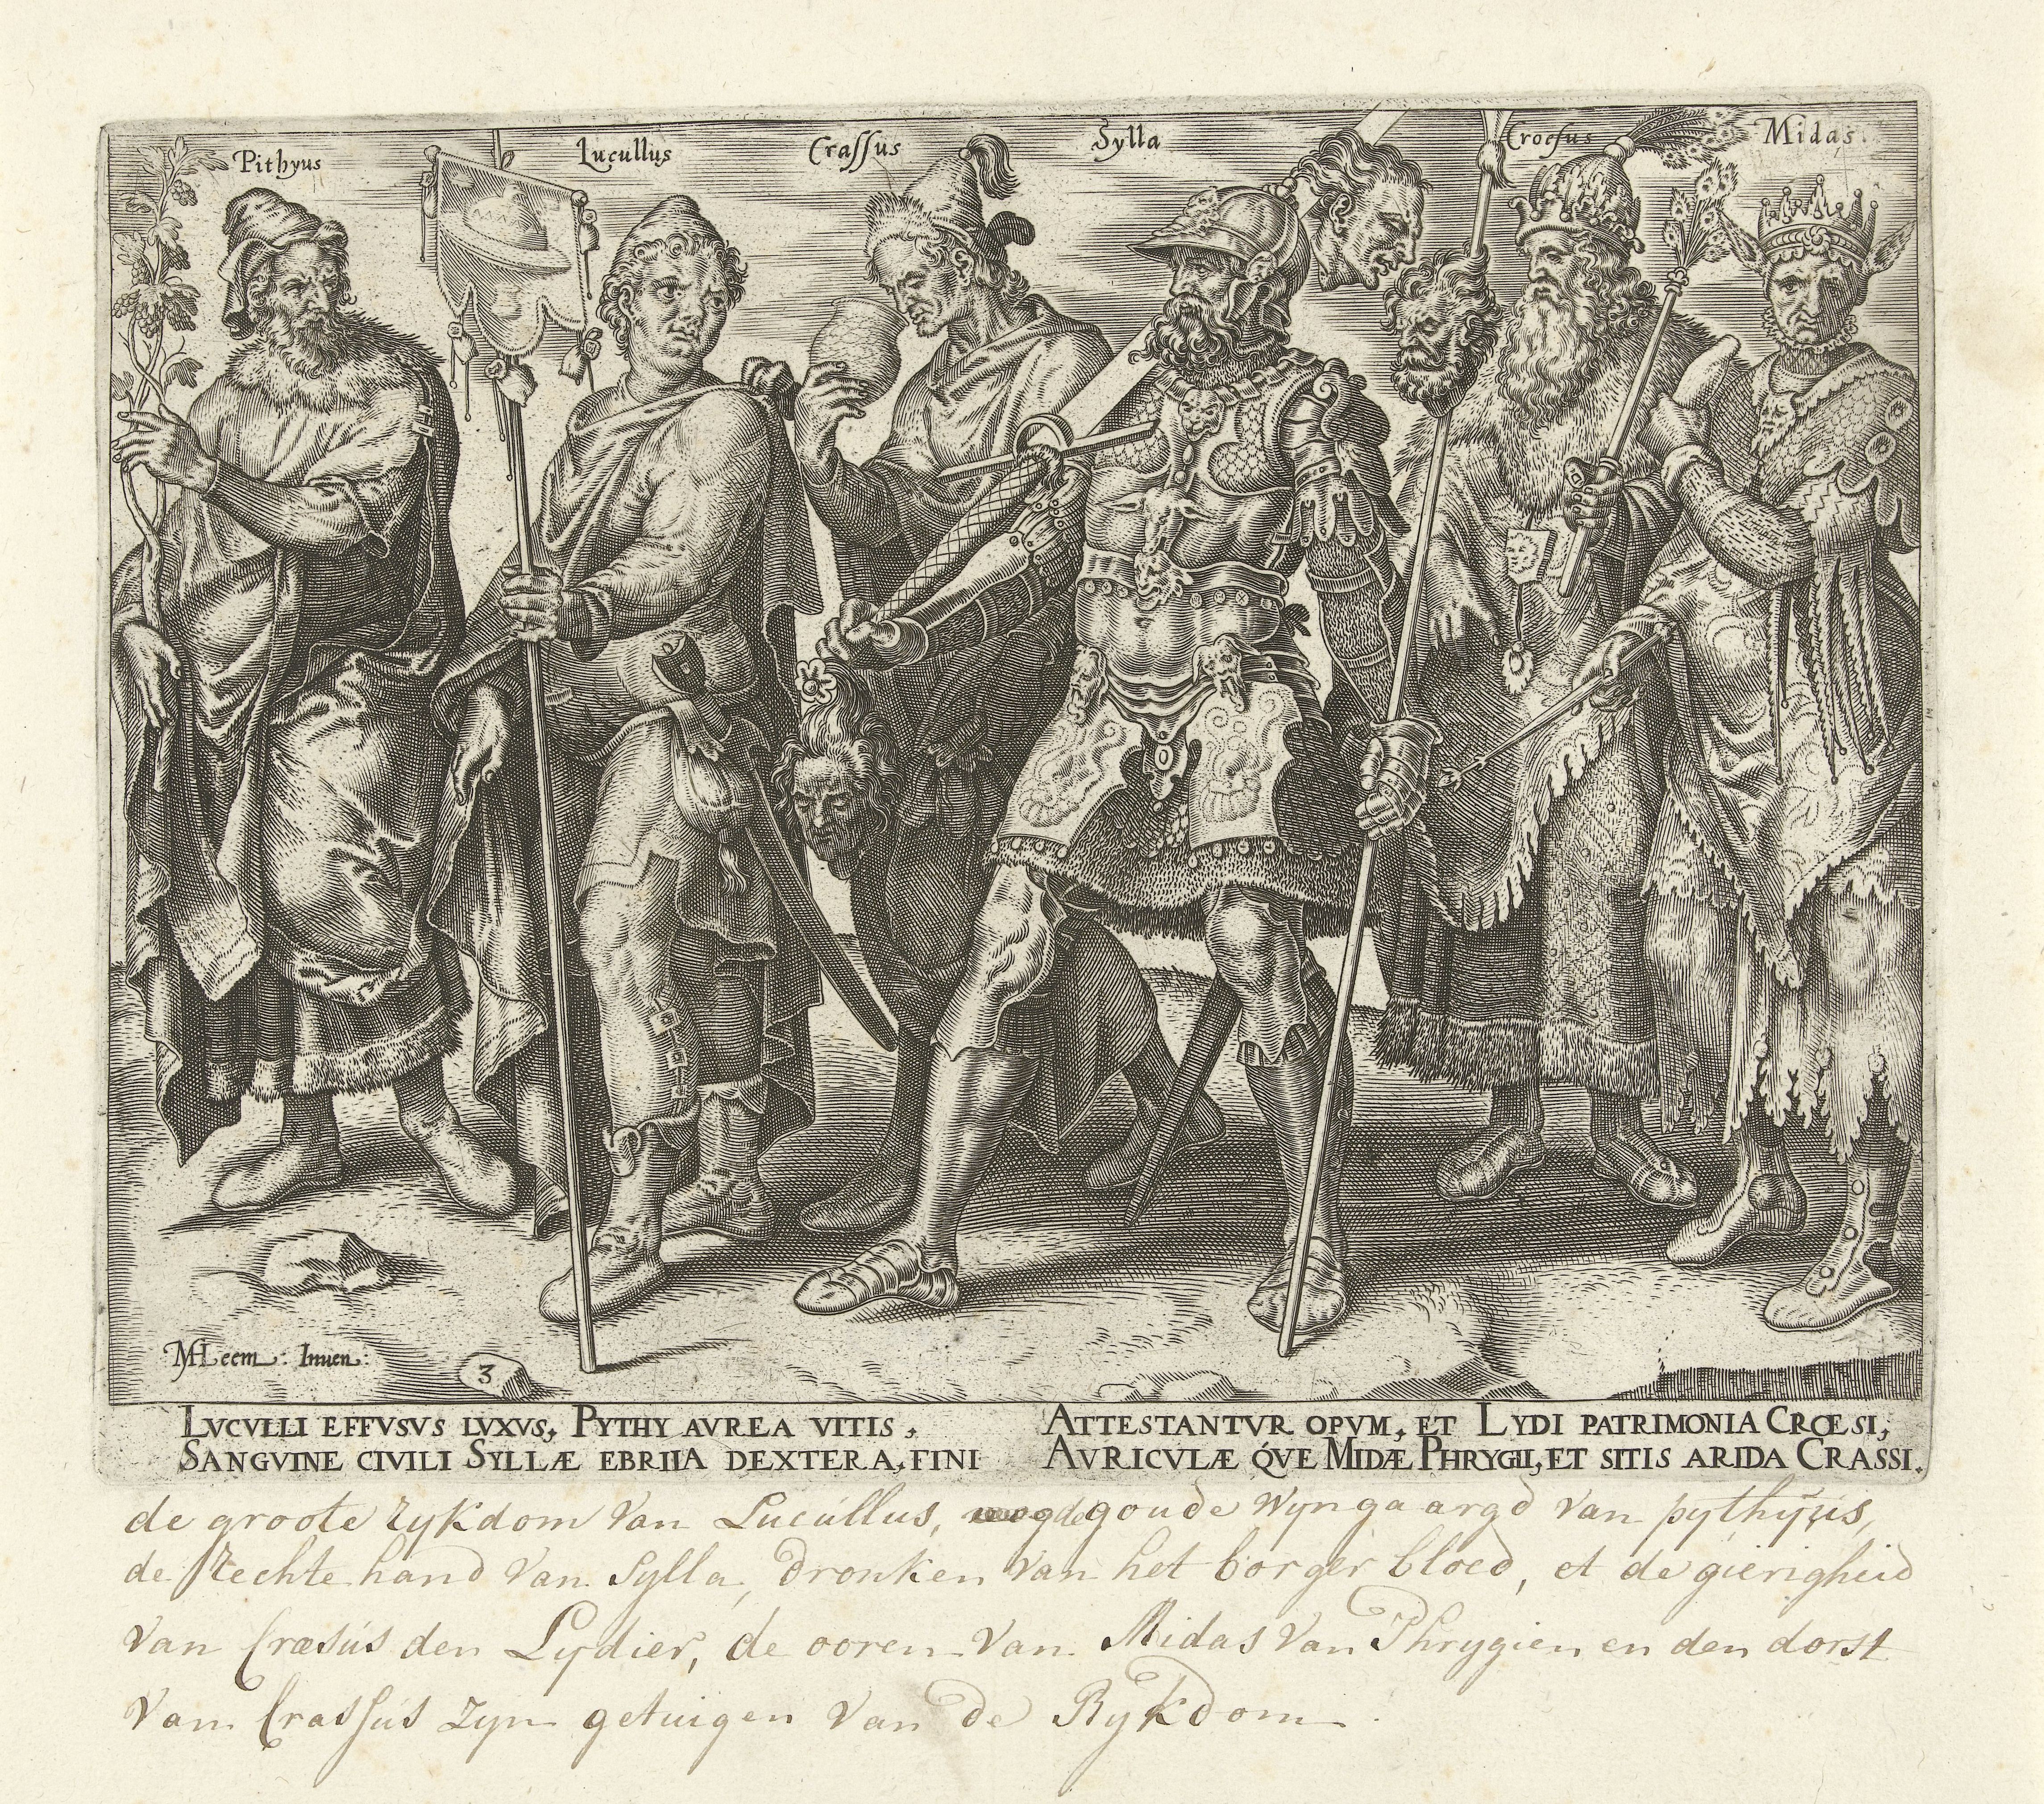 Pithyus Lucullus Crassus Sylla Croesus Midas.
MHeem. Inuen:
3
LVCVLLI EFFVSVS LVXVS, PYTHY AVREA VITIS,
SANGVINE CIVILI SYLLÆ EBRIIA DEXTERA, FINI
ATTESTANTVR OPVM, ET LYDI PATRIMONIA CRŒSI,
AVRICVLÆ QVE MIDÆ PHRYGII, ET SITIS ARIDA CRASSI.
de groote rykdom van Lucúllus, goude wyngaargd van pythyus,
de Rechte hand van Sylla, dronken van het borger bloed, et de gierigheid
van Cræsús den Lydier, de ooren van Midas van Phrygien en den dorst
van Crassús zyn getuigen van de Rykdom.